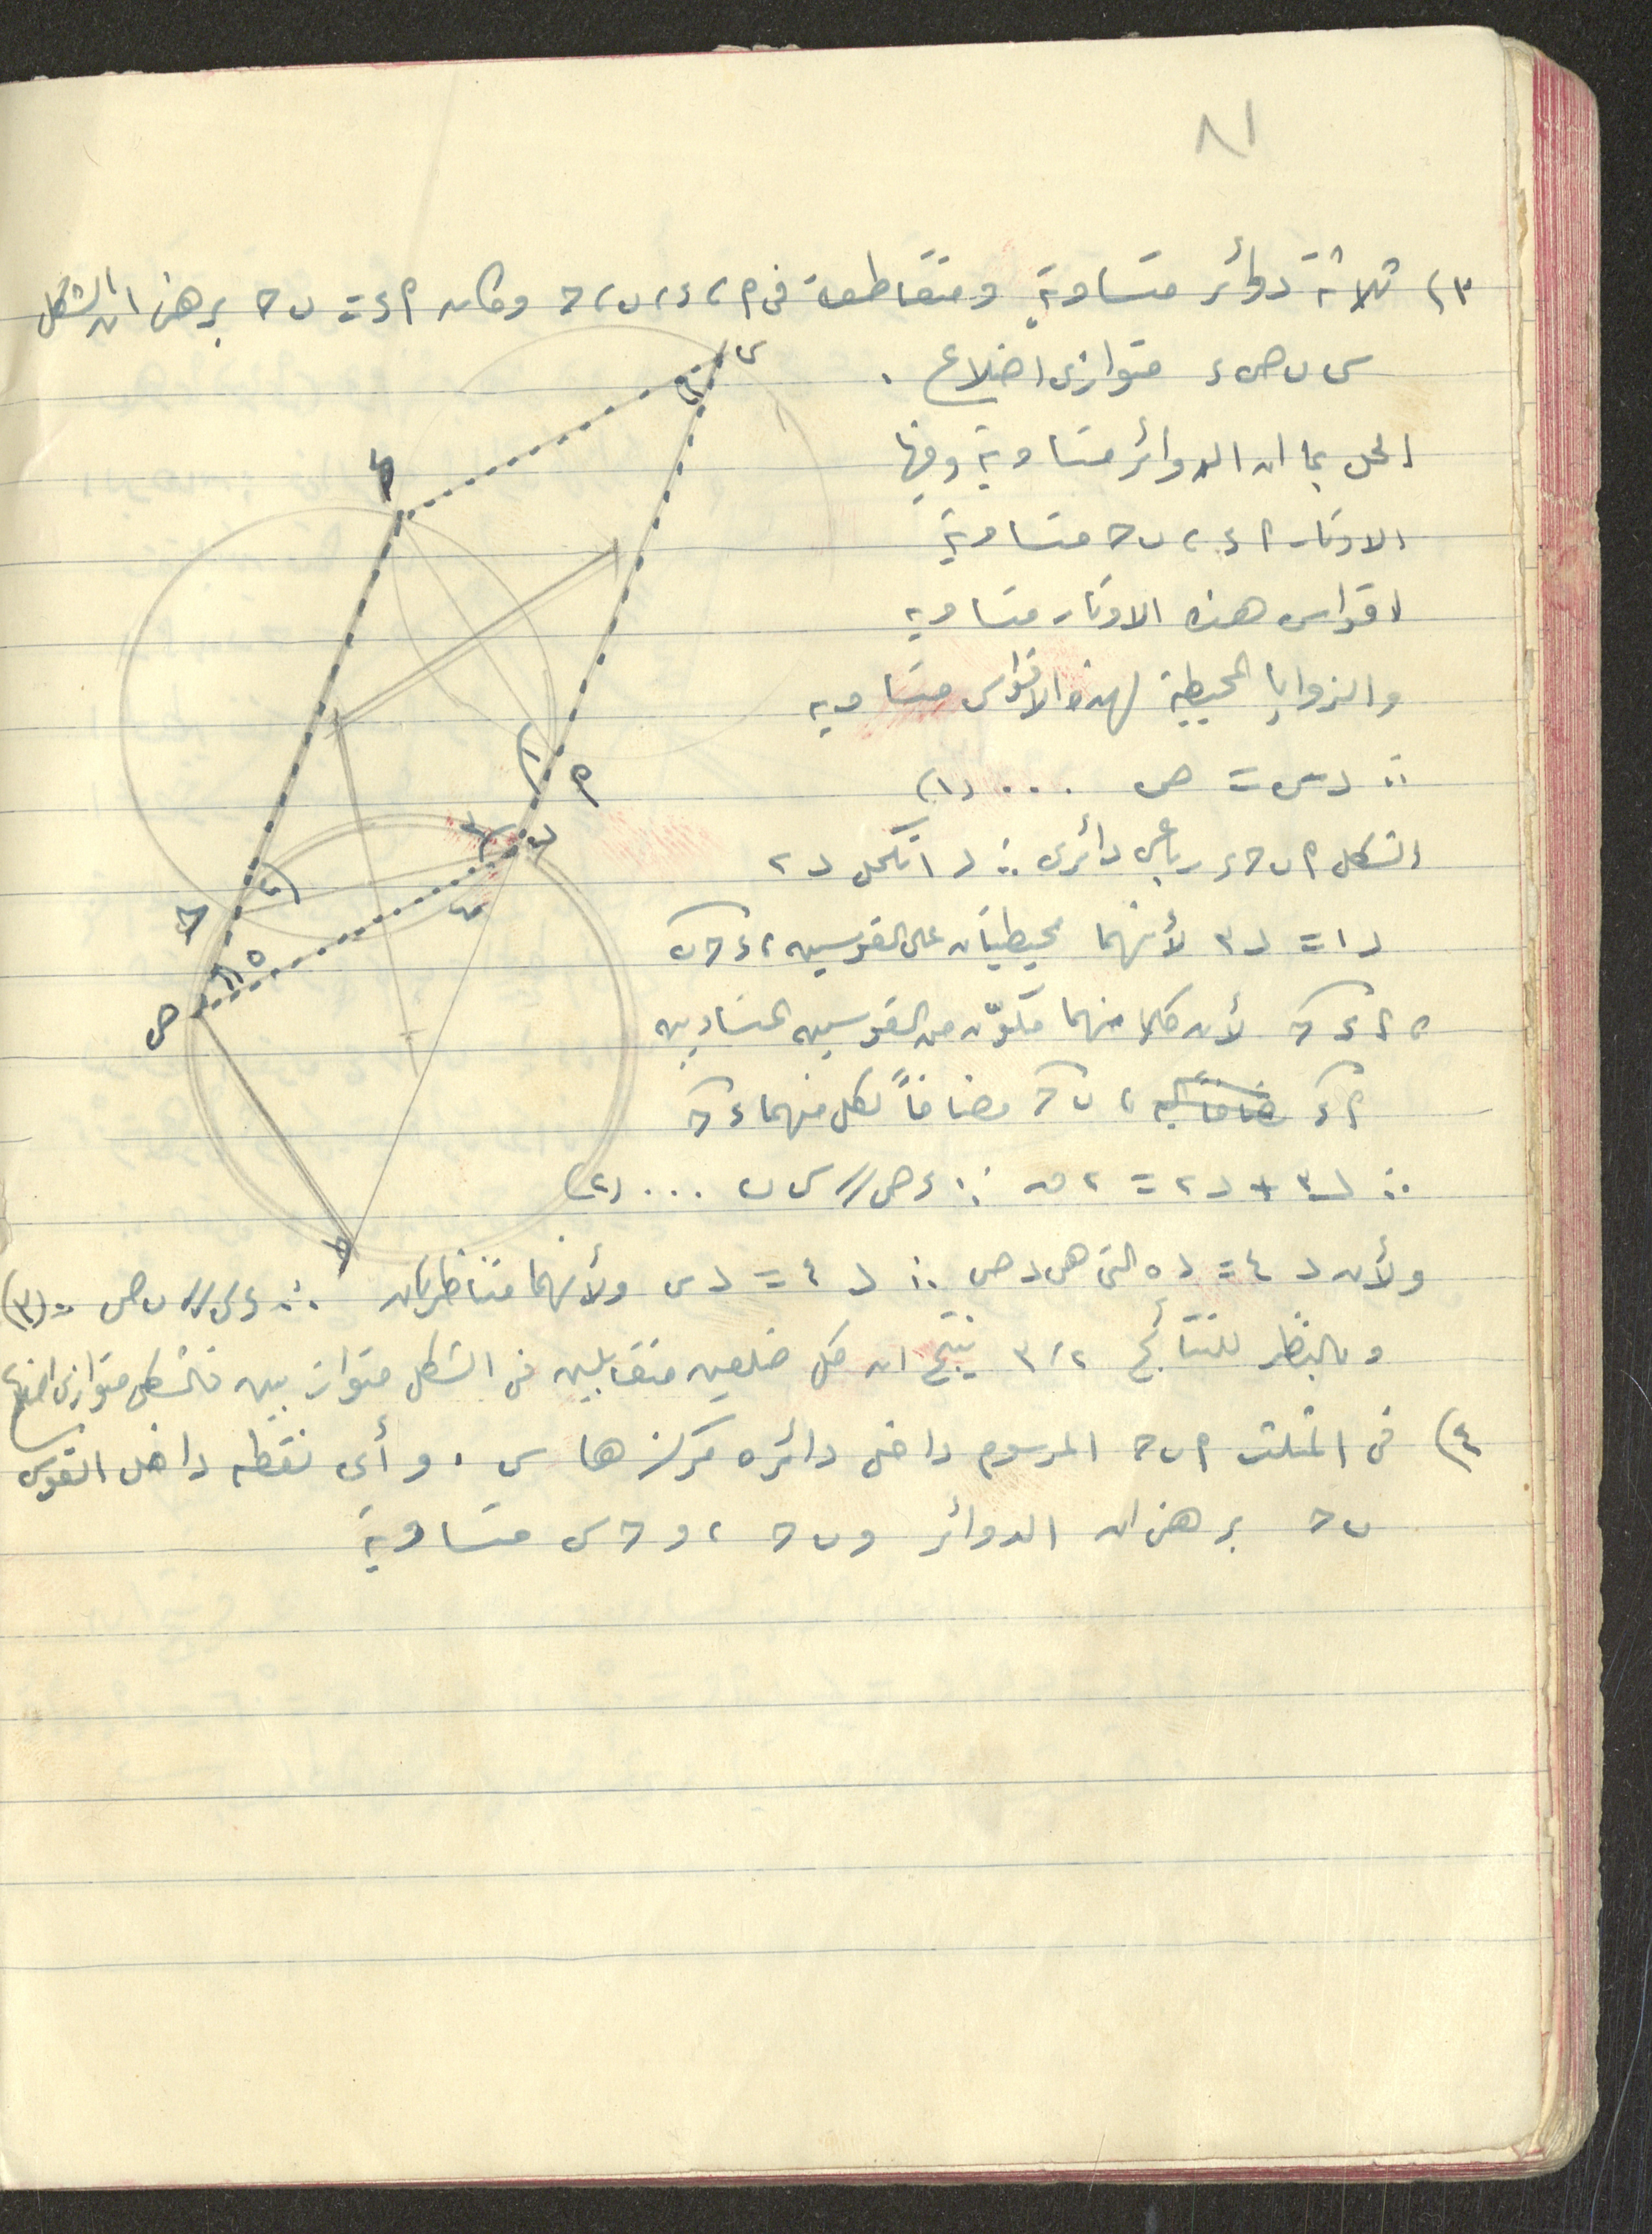 ٨١
٣) ثلاثة دوائر متساوية ومتقاطعة فى م ، ء ، ں ، ح وكان م ء = ں ح برهن ان الشكل
س ں ص ء متوازى اضلاع .
الحل بما ان الدوائر متساوية وفيها
الاوتار م ء ، ں ح متساوية
اقواس هذه الاوتار متساويه
والزوايا المحيطية لهذه الاقواس متساويه
∴ د س = ص ... (١)
الشكل م ں ح ء رباعى دائرى ∴ د ١ تكمل د ٢
د ١ = د ٣ لأنهما محيطيتان على القوسين ء ح ں
، م ء ح لأن كلا منهما مكوّن من القوسين المتساويين
م ء ، ں ح مضافاً لكل منهما ء ح
∴ د ٣ + د ٢ = ٢ ق ∴ ء ص // س ں ... (٢)
ولأن د ٤ = د ٥ التى هى د ص ∴ د ٤ = د س ولأنهما متناظرتان ∴ ء س // ں ص .. (٣)
وبالنظر للنتائج ٢ ، ٣ ينتج ان كل ضلعين متقابلين فى الشكل متوازيين فالشكل متوازى اضلاع
٤) فى المثلث م ں ح المرسوم داخل دائره مركزها س . و أى نقطه داخل القوس
ں ح برهن ان الدوائر و ں ح ، و ح س متساوية
س
ء
م
ں
ح
ص
١
٢
٣
٤
٥